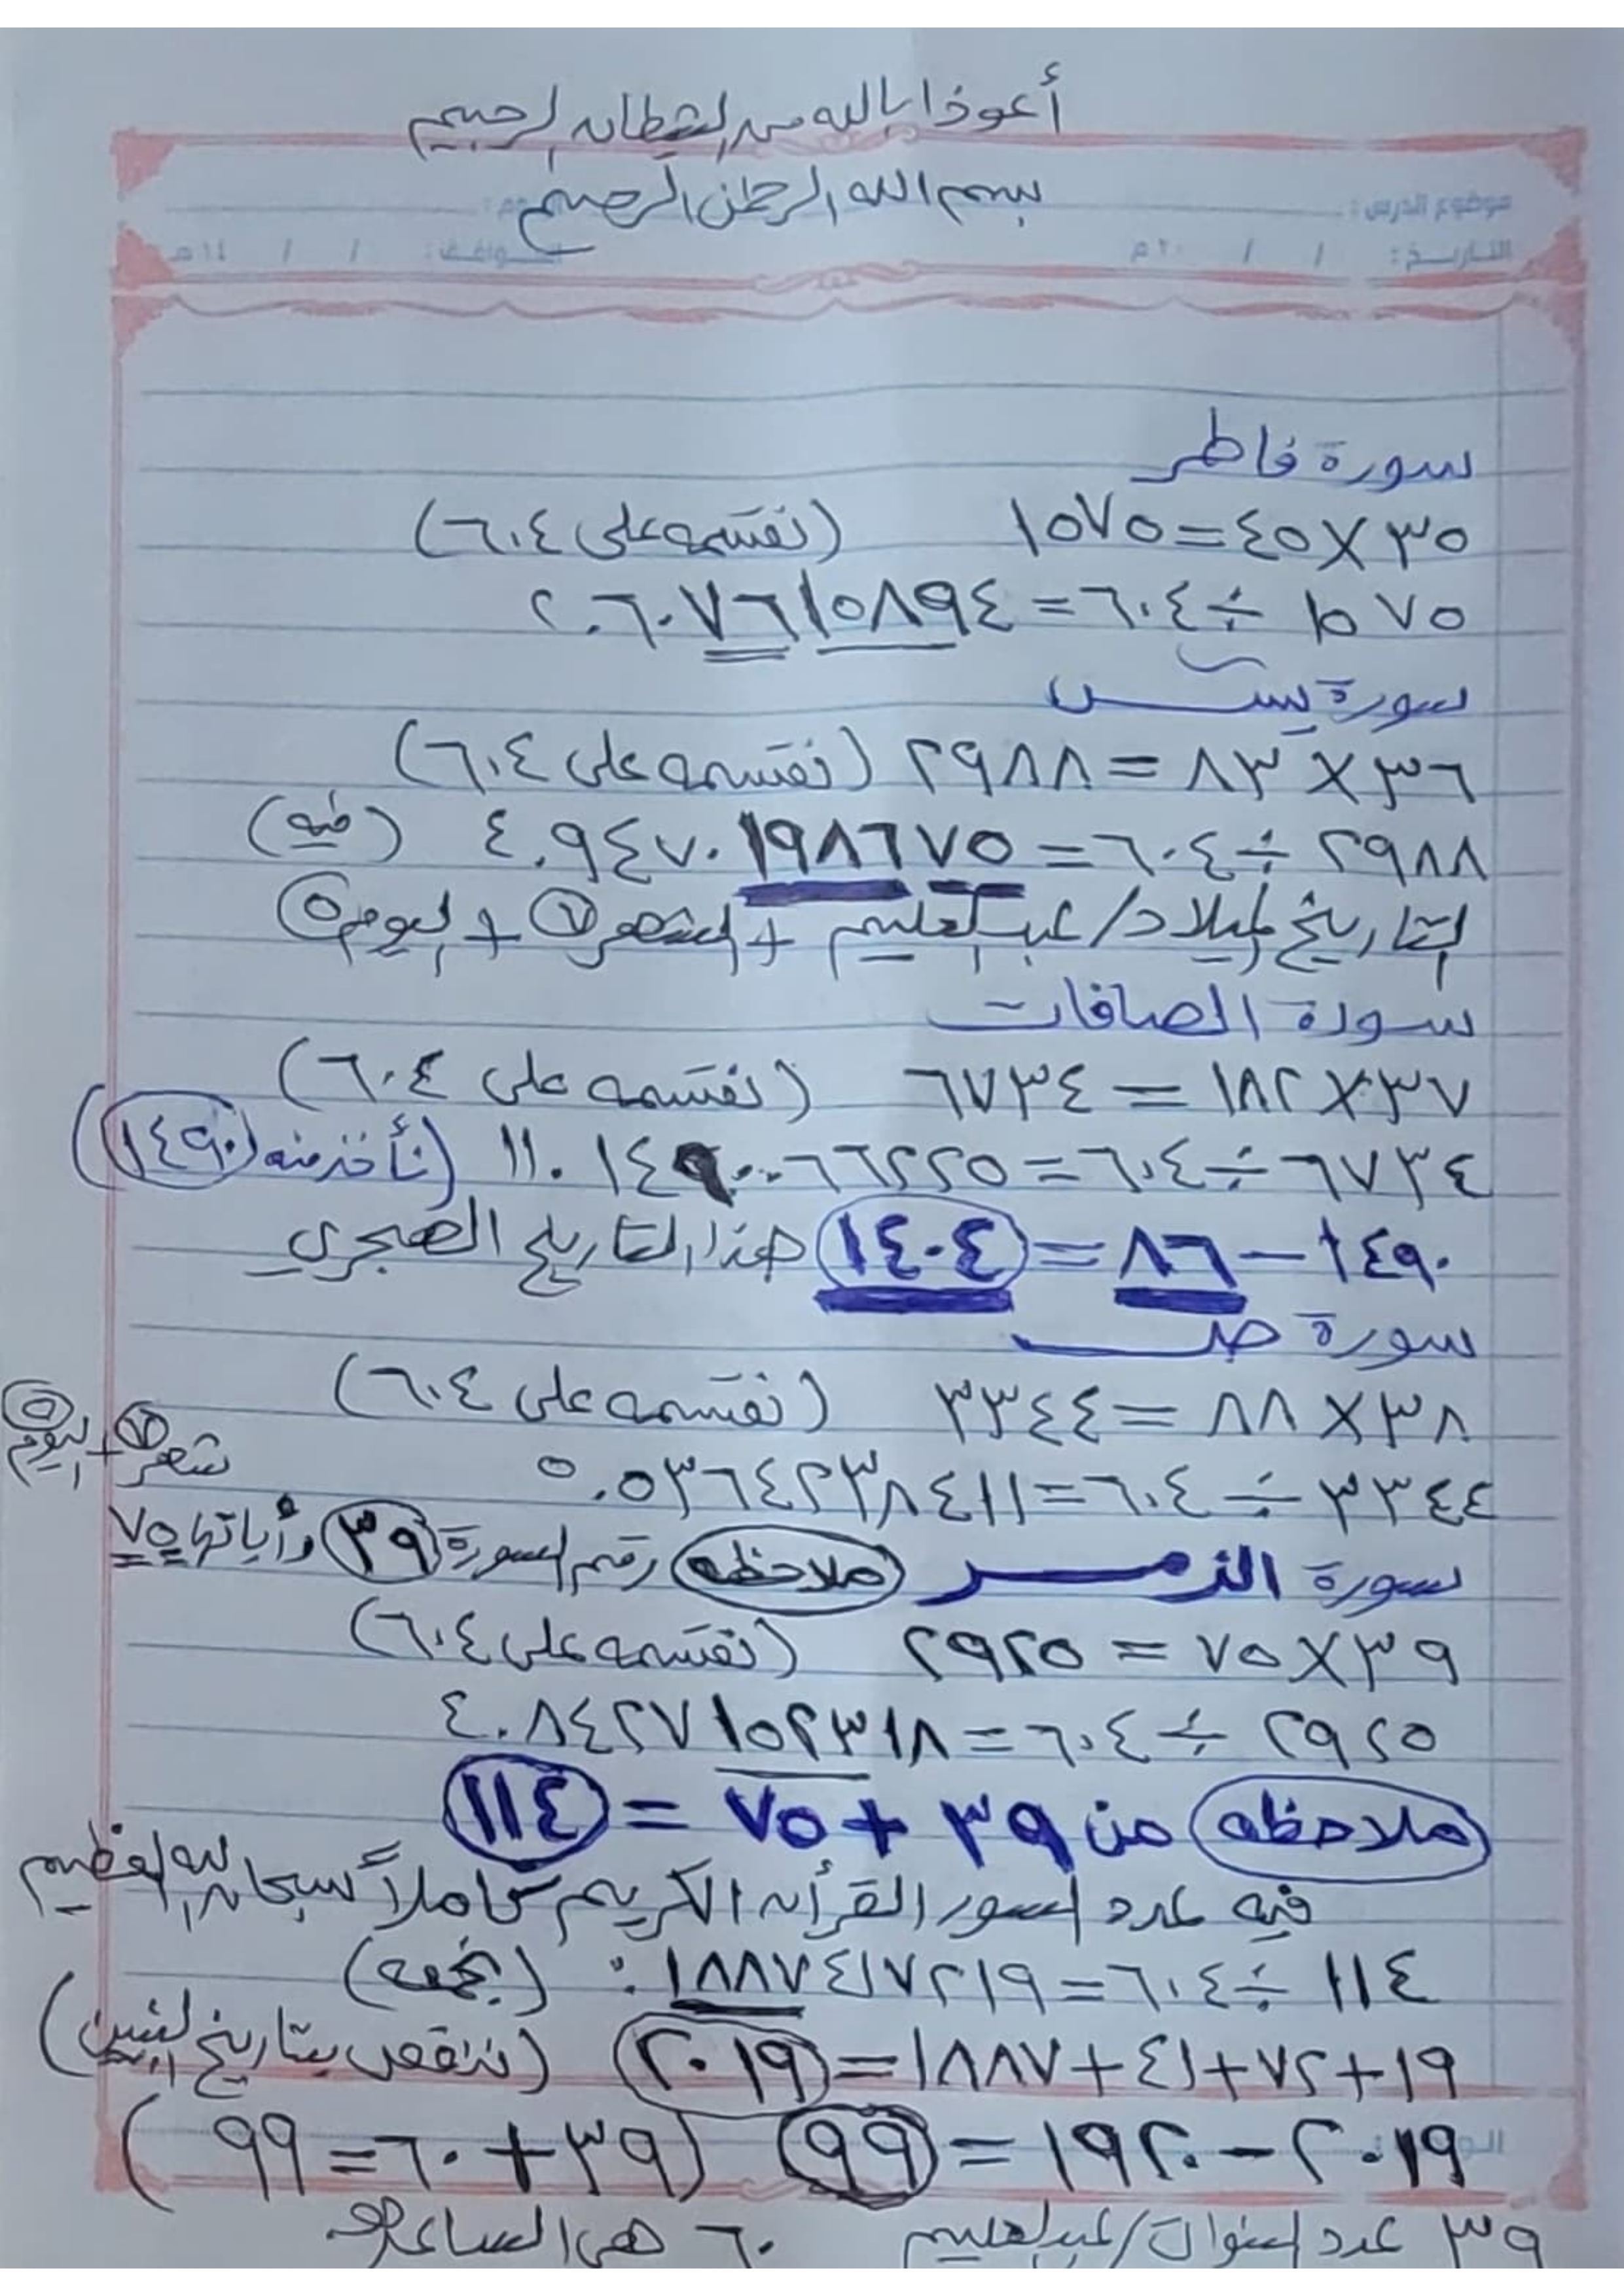 أعوذا بالله من الشيطان الرجيم
بسم الله الرحمن الرحيم
موضوع الدرس :
التاريخ : / / ٢٠م الموافق : / / ١٤هـ
سورة فاطر
٣٥ × ٤٥ = ١٥٧٥ (نقسمه على ٦٠٤)
١٥٧٥ ÷ ٦٠٤ = ٢.٦٠٧٦١٥٨٩٤
سورة يس
٣٦ × ٨٣ = ٢٩٨٨ (نقسمه على ٦٠٤)
٢٩٨٨ ÷ ٦٠٤ = ٤.٩٤٧٠١٩٨٦٧٥ (فيه)
التاريخ لميلاد/عبدالعليم + الشهر ٧ + اليوم ٥
سورة الصافات
٣٧ × ١٨٢ = ٦٧٣٤ (نقسمه على ٦٠٤)
٦٧٣٤ ÷ ٦٠٤ = ١١.١٤٩٠٠٦٦٢٢٥ (نأخذ منه ١٤٩٠)
١٤٩٠ – ٨٦ = ١٤٠٤ هذا التاريخ الهجري
سورة ص
٣٨ × ٨٨ = ٣٣٤٤ (نقسمه على ٦٠٤)
٣٣٤٤ ÷ ٦٠٤ = ٥.٥٣٦٤٢٣٨٤١١
شهر ٧ + اليوم ٥
سورة الزمر ملاحظه رقم السورة ٣٩ وأياتها ٧٥
٣٩ × ٧٥ = ٢٩٢٥ (نقسمه على ٦٠٤)
٢٩٢٥ ÷ ٦٠٤ = ٤.٨٤٢٧١٥٢٣١٨
ملاحظه من ٣٩ + ٧٥ = ١١٤
فيه عدد السور القرأن الكريم كاملاً سبحان الله العظيم
١١٤ ÷ ٦٠٤ = ٠.١٨٨٧٤١٧٢١٩ (نجمعه)
١٩ + ٧٢ + ٤١ + ١٨٨٧ = ٢٠١٩ (ننقص بتاريخ)
٢٠١٩ – ١٩٢٠ = ٩٩ (٣٩ + ٦٠ = ٩٩)
٣٩ عدد السنوات/عبدالعليم ٦٠ هي الساعة